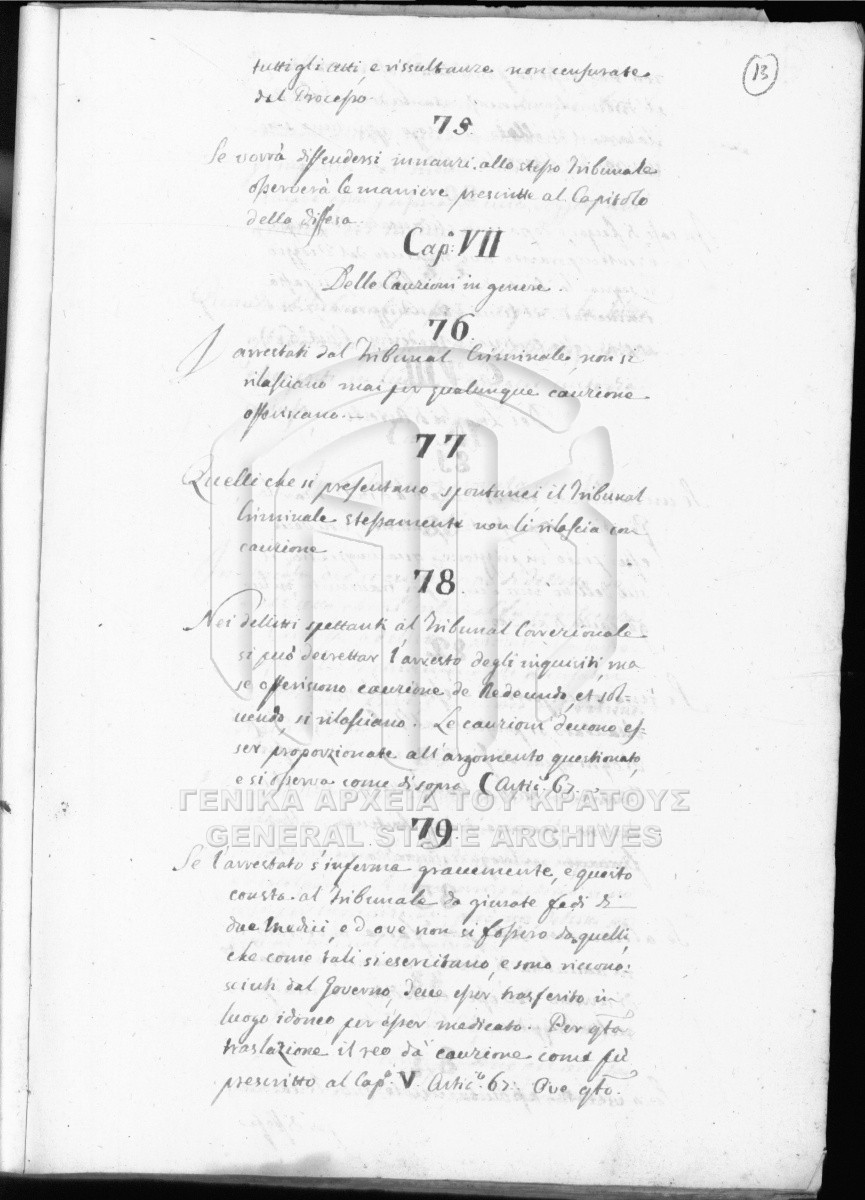 13
tutti gli atti, e rissultanze non censurate
dal Processo.
75.
Se vorrà diffendersi innanzi allo stesso Tribunale
osserverà le maniere prescritte al Capitolo
della diffesa.
Cap.º VII
Delle Cauzioni in genere
76.
I arrestati dal Tribunal Criminale, non si
rilasciano mai per qualunque cauzione
offeriscano.
77
Quelli che si presentano spontanei il Tribunal
Criminale stessamente non li rilascia con
cauzione
78.
Nei delitti spettanti al Tribunal Correzionale
si può decrettar l'arresto degli inquisiti, ma
se offeriscono cauzione de Redeundo, et sol=
vendo, si rilasciano. Le cauzioni devono es=
ser proporzionate all'argomento questionato,
e si osserva come disopra (Artic.º 67.
ΓΕΝΙΚΑ ΑΡΧΕΙΑ ΤΟΥ ΚΡΑΤΟΥΣ
GENERAL STATE ARCHIVES
79.
Se l'arrestato s'inferma gravemente, e questo
consta al Tribunale da giurate fedi di
due Medici, ed ove non si fossero da quelli,
che come tali si esercitano, e sono ricono=
sciuti dal Governo, deve esser trasferito in
luogo idoneo per esser medicato. Per qto
traslazione il reo dà cauzione come fù
prescritto al Cap.º V. Artic.º 67. Ove qto.